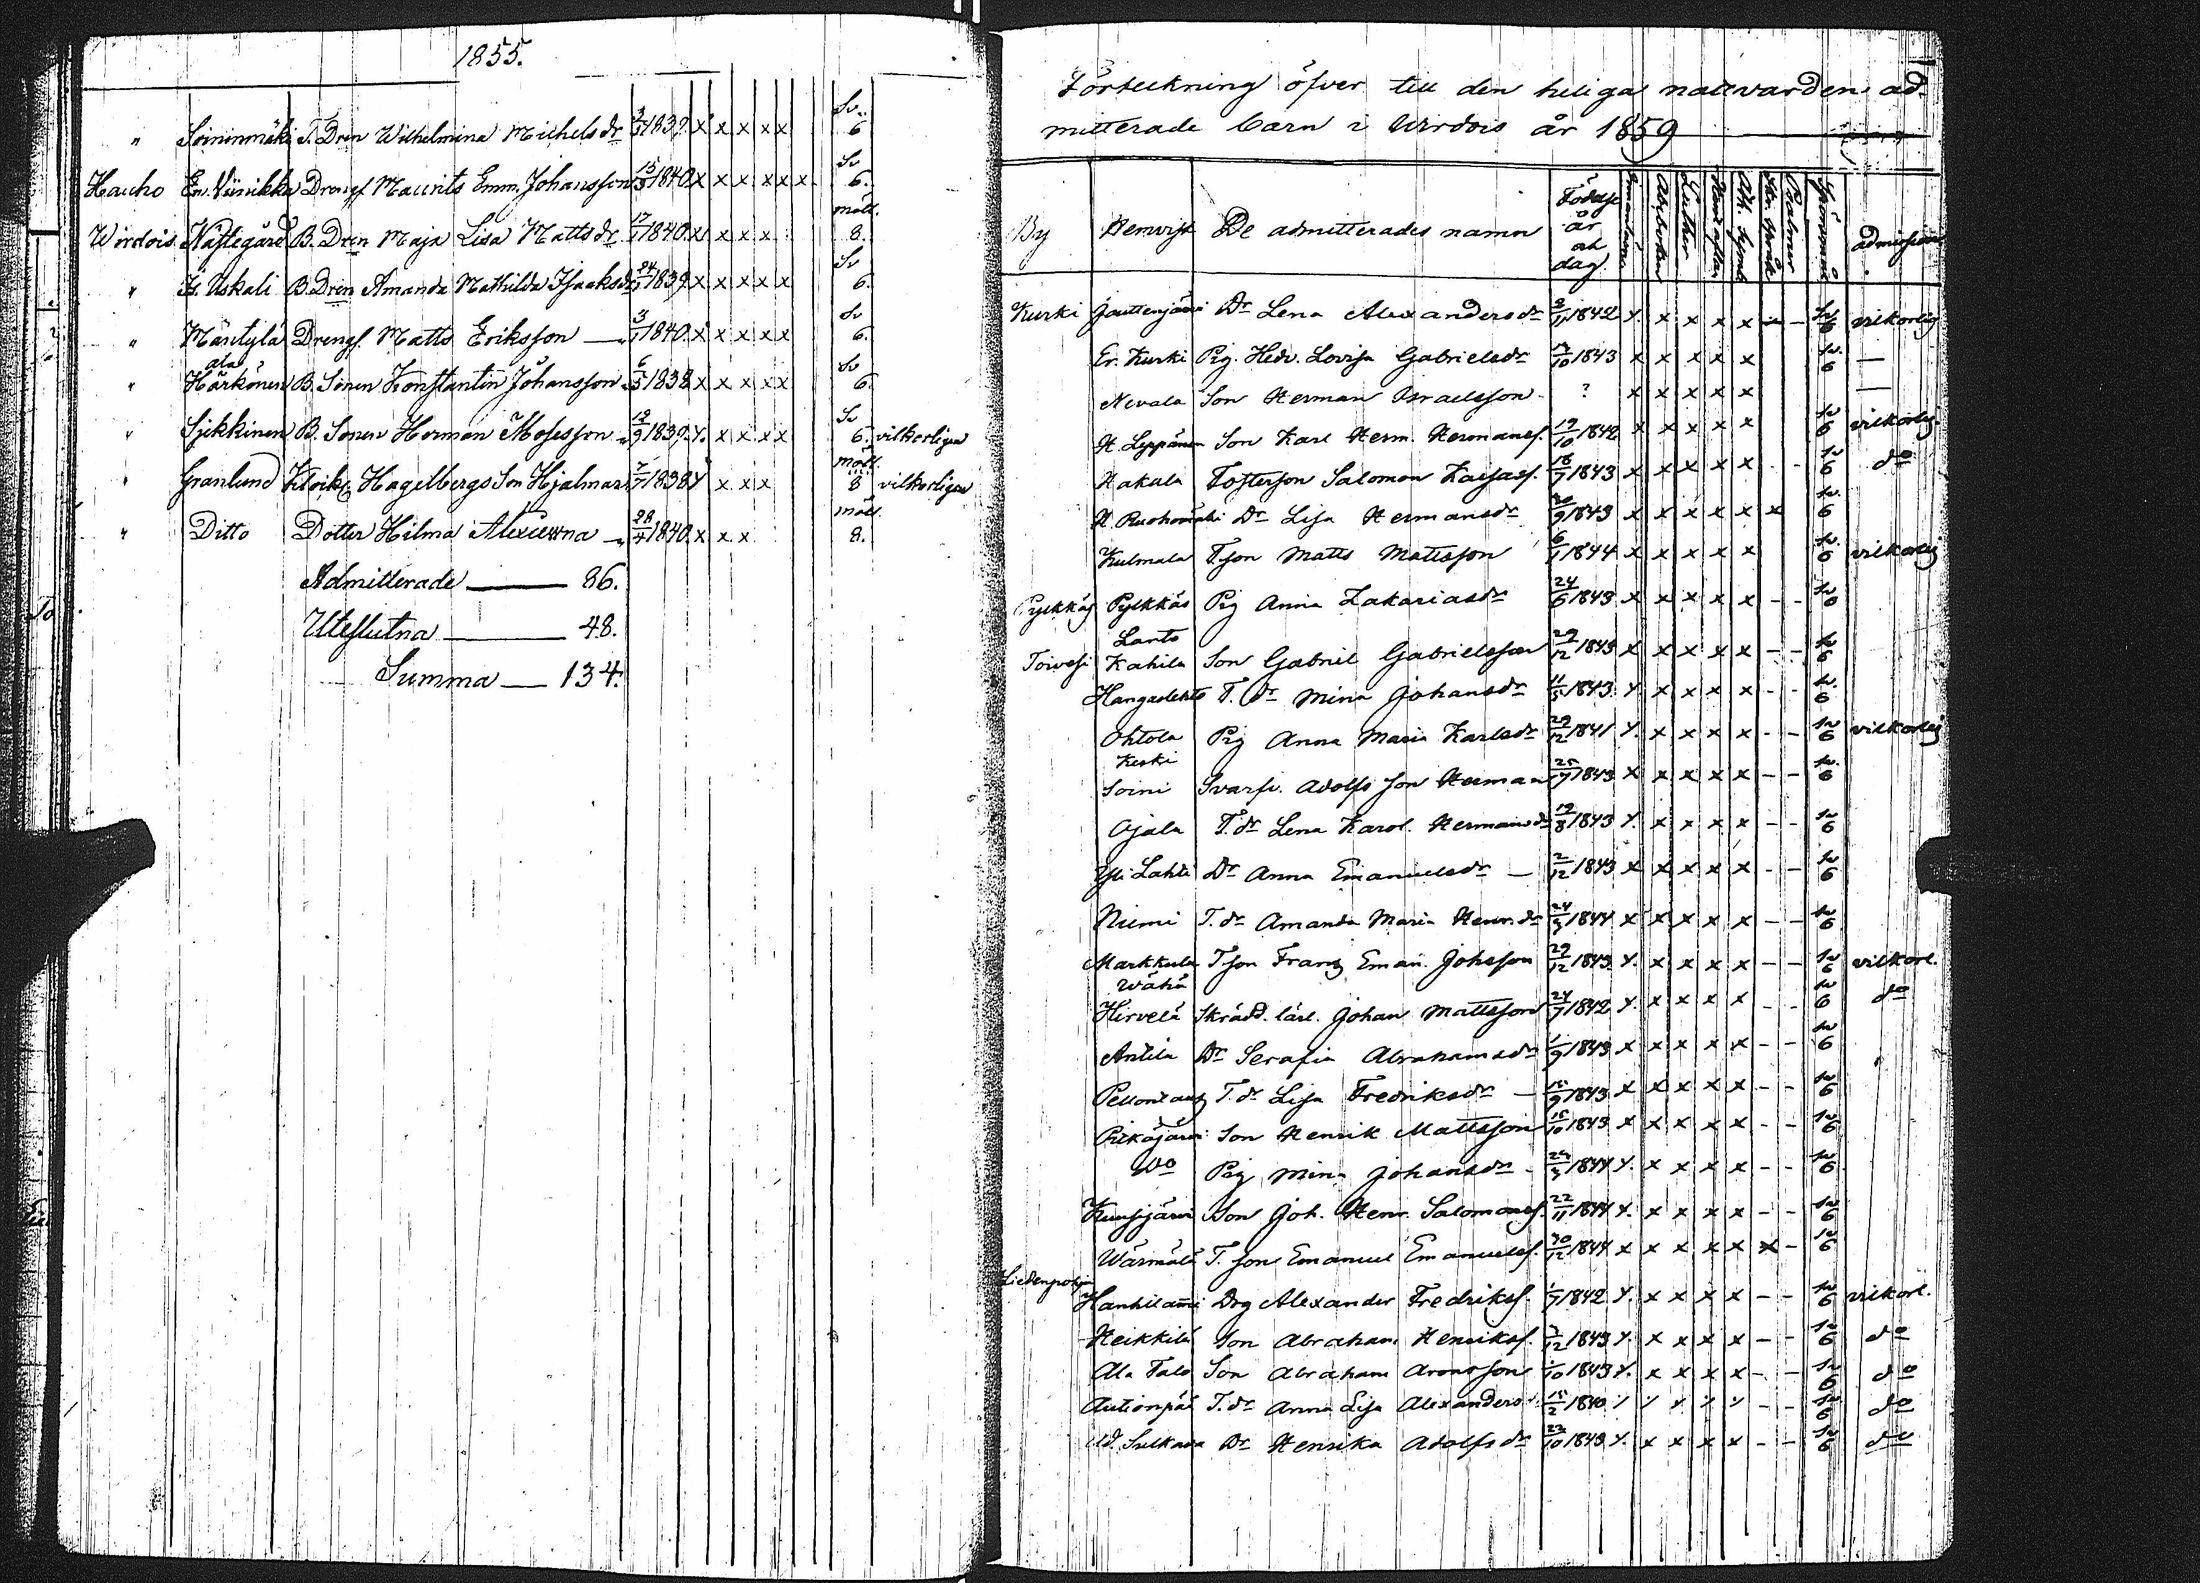 1855.
" Soininmäki T. Dren Wilhelmina Michelsdr 1839. x x x x x Sv 6
Hauho En. Viinikka Drengs. Maurits Emm. Johansson 15/3 1840. x x x x x x Sv 6.
Wirdois Nästegård B. Dren Maja Lisa Mattsdr 17/1 1840. x x x x mått. 8.
" Is. Uskali B. Dren Amanda Mathilda Isaksdr 1839 x x x x x Sv 6.
" Mäntylä Drengs. Matts Eriksson 3/1 1840. x x x x x Sv 6.
" ala Härkönen B. Sonen Konstantin Johansson 6/5 1838. x x x x x Sv 6.
" Sjekkinen B. Sonen Herman Mosesson 19/9 1839. x x x x x Sv 6. vilkorligen
" Granlund Hagelbergs Son Hjalmar 7/7 1838 x x x x mått. 8 vilkorligen
" Ditto Dotter Hilma 28/4 1840. x x x mått. 8.
Admitterade — 86.
Uteslutna — 48.
Summa — 134.
Förteckning öfver till den heliga nattvarden ad-
mitterade barn i Wirdois år 1859
By Hemvist De admitterades namn Födelse år och dag. Abcboken Luther Ath. Symb. Psalmer admission
Kurki Jauttenjärvi Dr Lena Alexandersdr 2/11 1842 x x x x x x – Sv 6 vilkorlig
Er. Kurki Pig. Hedv. Lovisa Gabrielsdr 1843 x x x x x Sv. 6 —
Nevala Son Herman Israelsson ? x x x x x —
H. Leppänen Son Karl Herm. Hermanss. 19/10 1842 x x x x x Sv 6 vilkorlig.
Hakala Fosterson Salomon 18/7 1843 x x x x x – Sv 6 do
H. Ruohomäki Dr Lisa Hermansdr 30/9 1843 x x x x x x Sv. 6
Kulmala T. son Matts Mattsson 6/1 1844 x x x x x Sv. 6 vilkorlig
Pylkkäs Pylkkäs Pig Anna Zakariasdr 24/6 1843 x x x x x – – Sv 6
Toivesi Lanto Kahila Son Gabriel Gabrielsson 29/12 1843 x x x x x – – Sv 6
Hangaslehto T. Dr Mina Johansdr 11/5 1843. x x x x x – – Sv. 6
Ohtola Pig Anna Maria Karlsdr 29/12 1841 x x x x x – – Sv 6 vilkorlig
Keski Soini Svarfv. Adolfs son Herman 1843 x x x x x – – Sv. 6
Ojala T. dr Lena Karol. Hermansdr 19/8 1843 x x x x x – – Sv 6
Yli Lahti Dr Anna Emanuelsdr — 2/12 1843 x x x x x – – Sv 6
Niemi T. dr Amanda Maria Henr. dr 24/3 1844 x x x x x – – Sv 6
Markkula T son Frans Eman. Johsson 29/12 1843 x x x x x – – Sv 6 vilkorl.
Wähä Hirvelä Skrädd. lärl. Johan Mattsson 24/7 1842 x x x x x – – Sv 6 do
Antila Dr Serafia Abrahamsdr 1/9 1843 x x x x x – – Sv 6
T. dr Lisa Fredriksdr — 15/9 1843 x x x x x – – Sv 6
Pitkäjärvi Son Henrik Mattsson 15/10 1843 x x x x x – – Sv 6
Do Pig Mina Johansdr 1844 x x x x x – – Sv 6
Kurjjärvi Son Joh. Henr. Salomonss. 22/11 1844 x x x x x – – Sv 6
Wärmälä T. son Emanuel Emanuelss. 30/12 1844 x x x x x x – Sv 6
Liedenpohja Hanhilammi Drg Alexander Fredrikss. 1/7 1842 x x x x x – – Sv 6 vilkorl.
Heikkilä Son Abraham Henrikss. 1843 x x x x x – – Sv 6 do
Ala Talo Son Abraham Aronsson 1843 x x x x x – – Sv 6 do
Autionpää T. dr Anna Lisa Alexandersd. 15/2 1840 x x x x x – – Sv 6 do
Ad. Sulkava Dr Henrika Adolfsdr 22/10 1843 x x x x x – – Sv 6 do